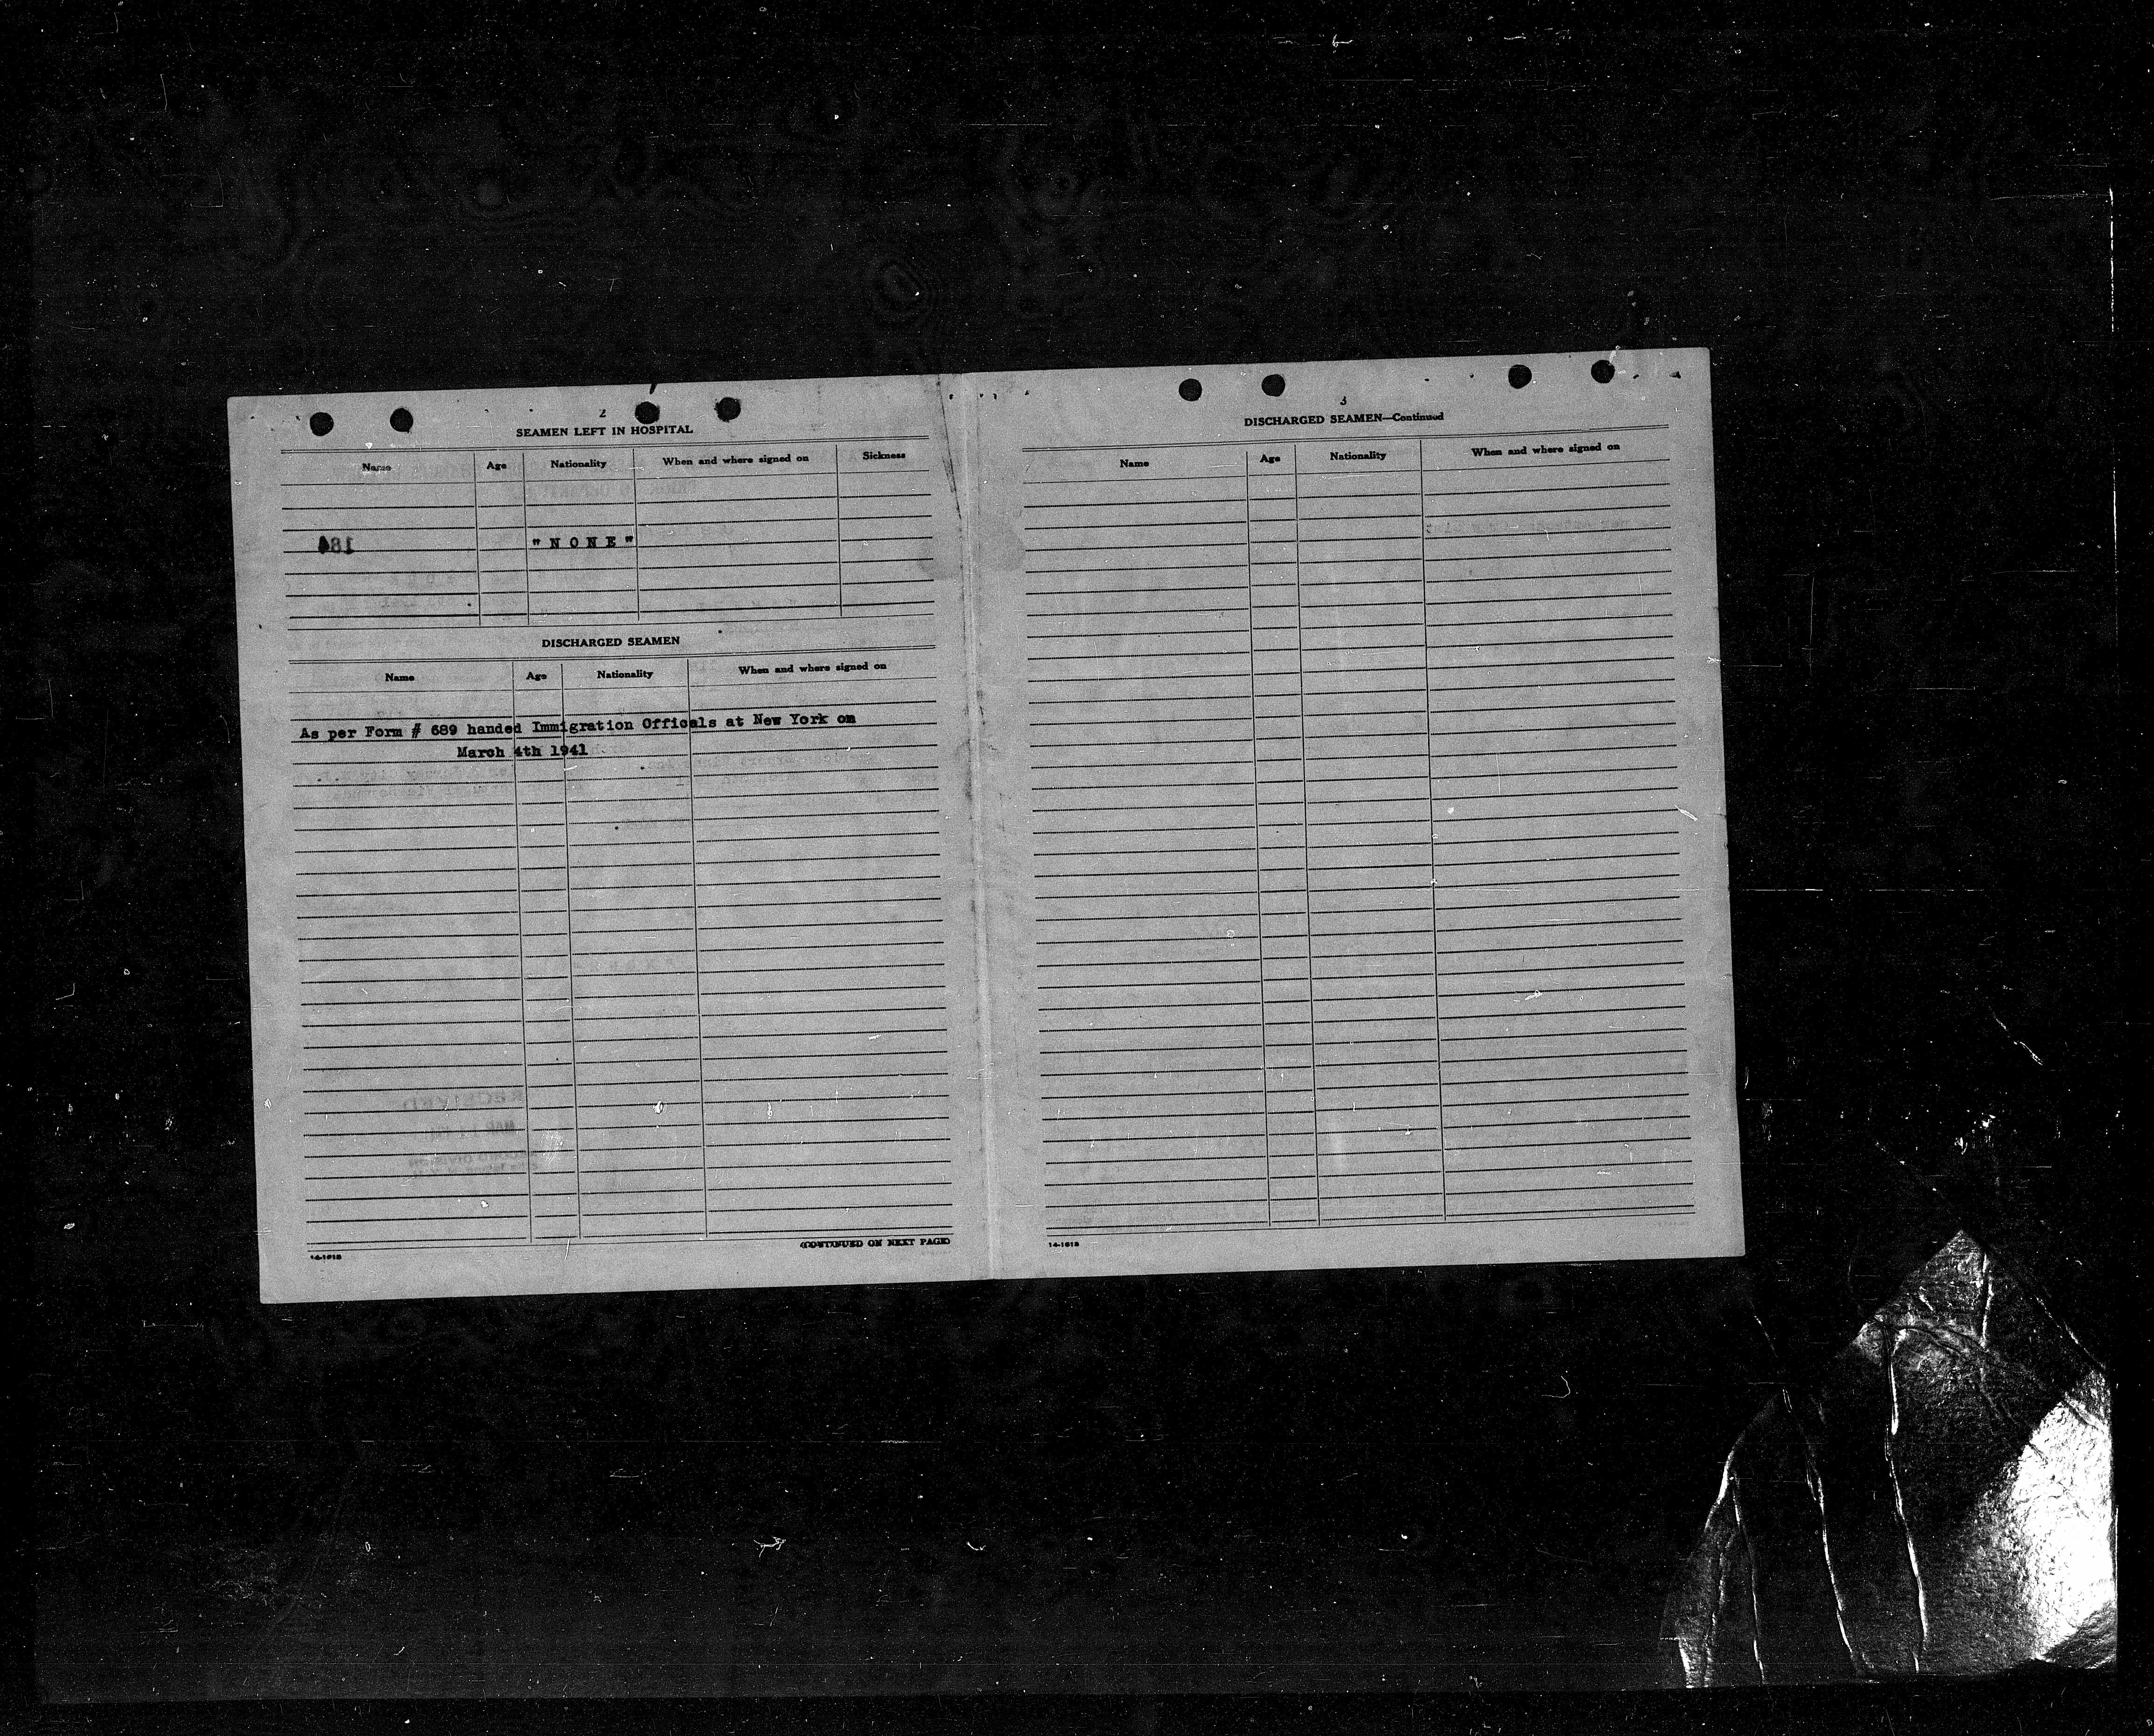 2
SEAMEN LEFT IN HOSPITAL
Name Age Nationality When and where signed on Sickness
184 "NONE"
DISCHARGED SEAMEN
Name Age Nationality When and where signed on
As per Form # 689 handed Immigration Officals at New York on
March 4th 1941
RECEIVED
(CONTINUED ON NEXT PAGE)
14-1618
3
DISCHARGED SEAMEN—Continued
Name Age Nationality When and where signed on
14-1618